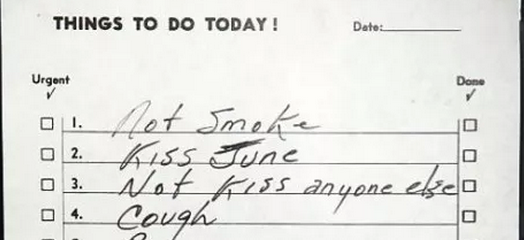 THINGS TO DO TODAY!
Date:
Urgent
Done
✓
✓
1. Not Smoke
2. Kiss June
3. Not Kiss anyone else
4. Cough